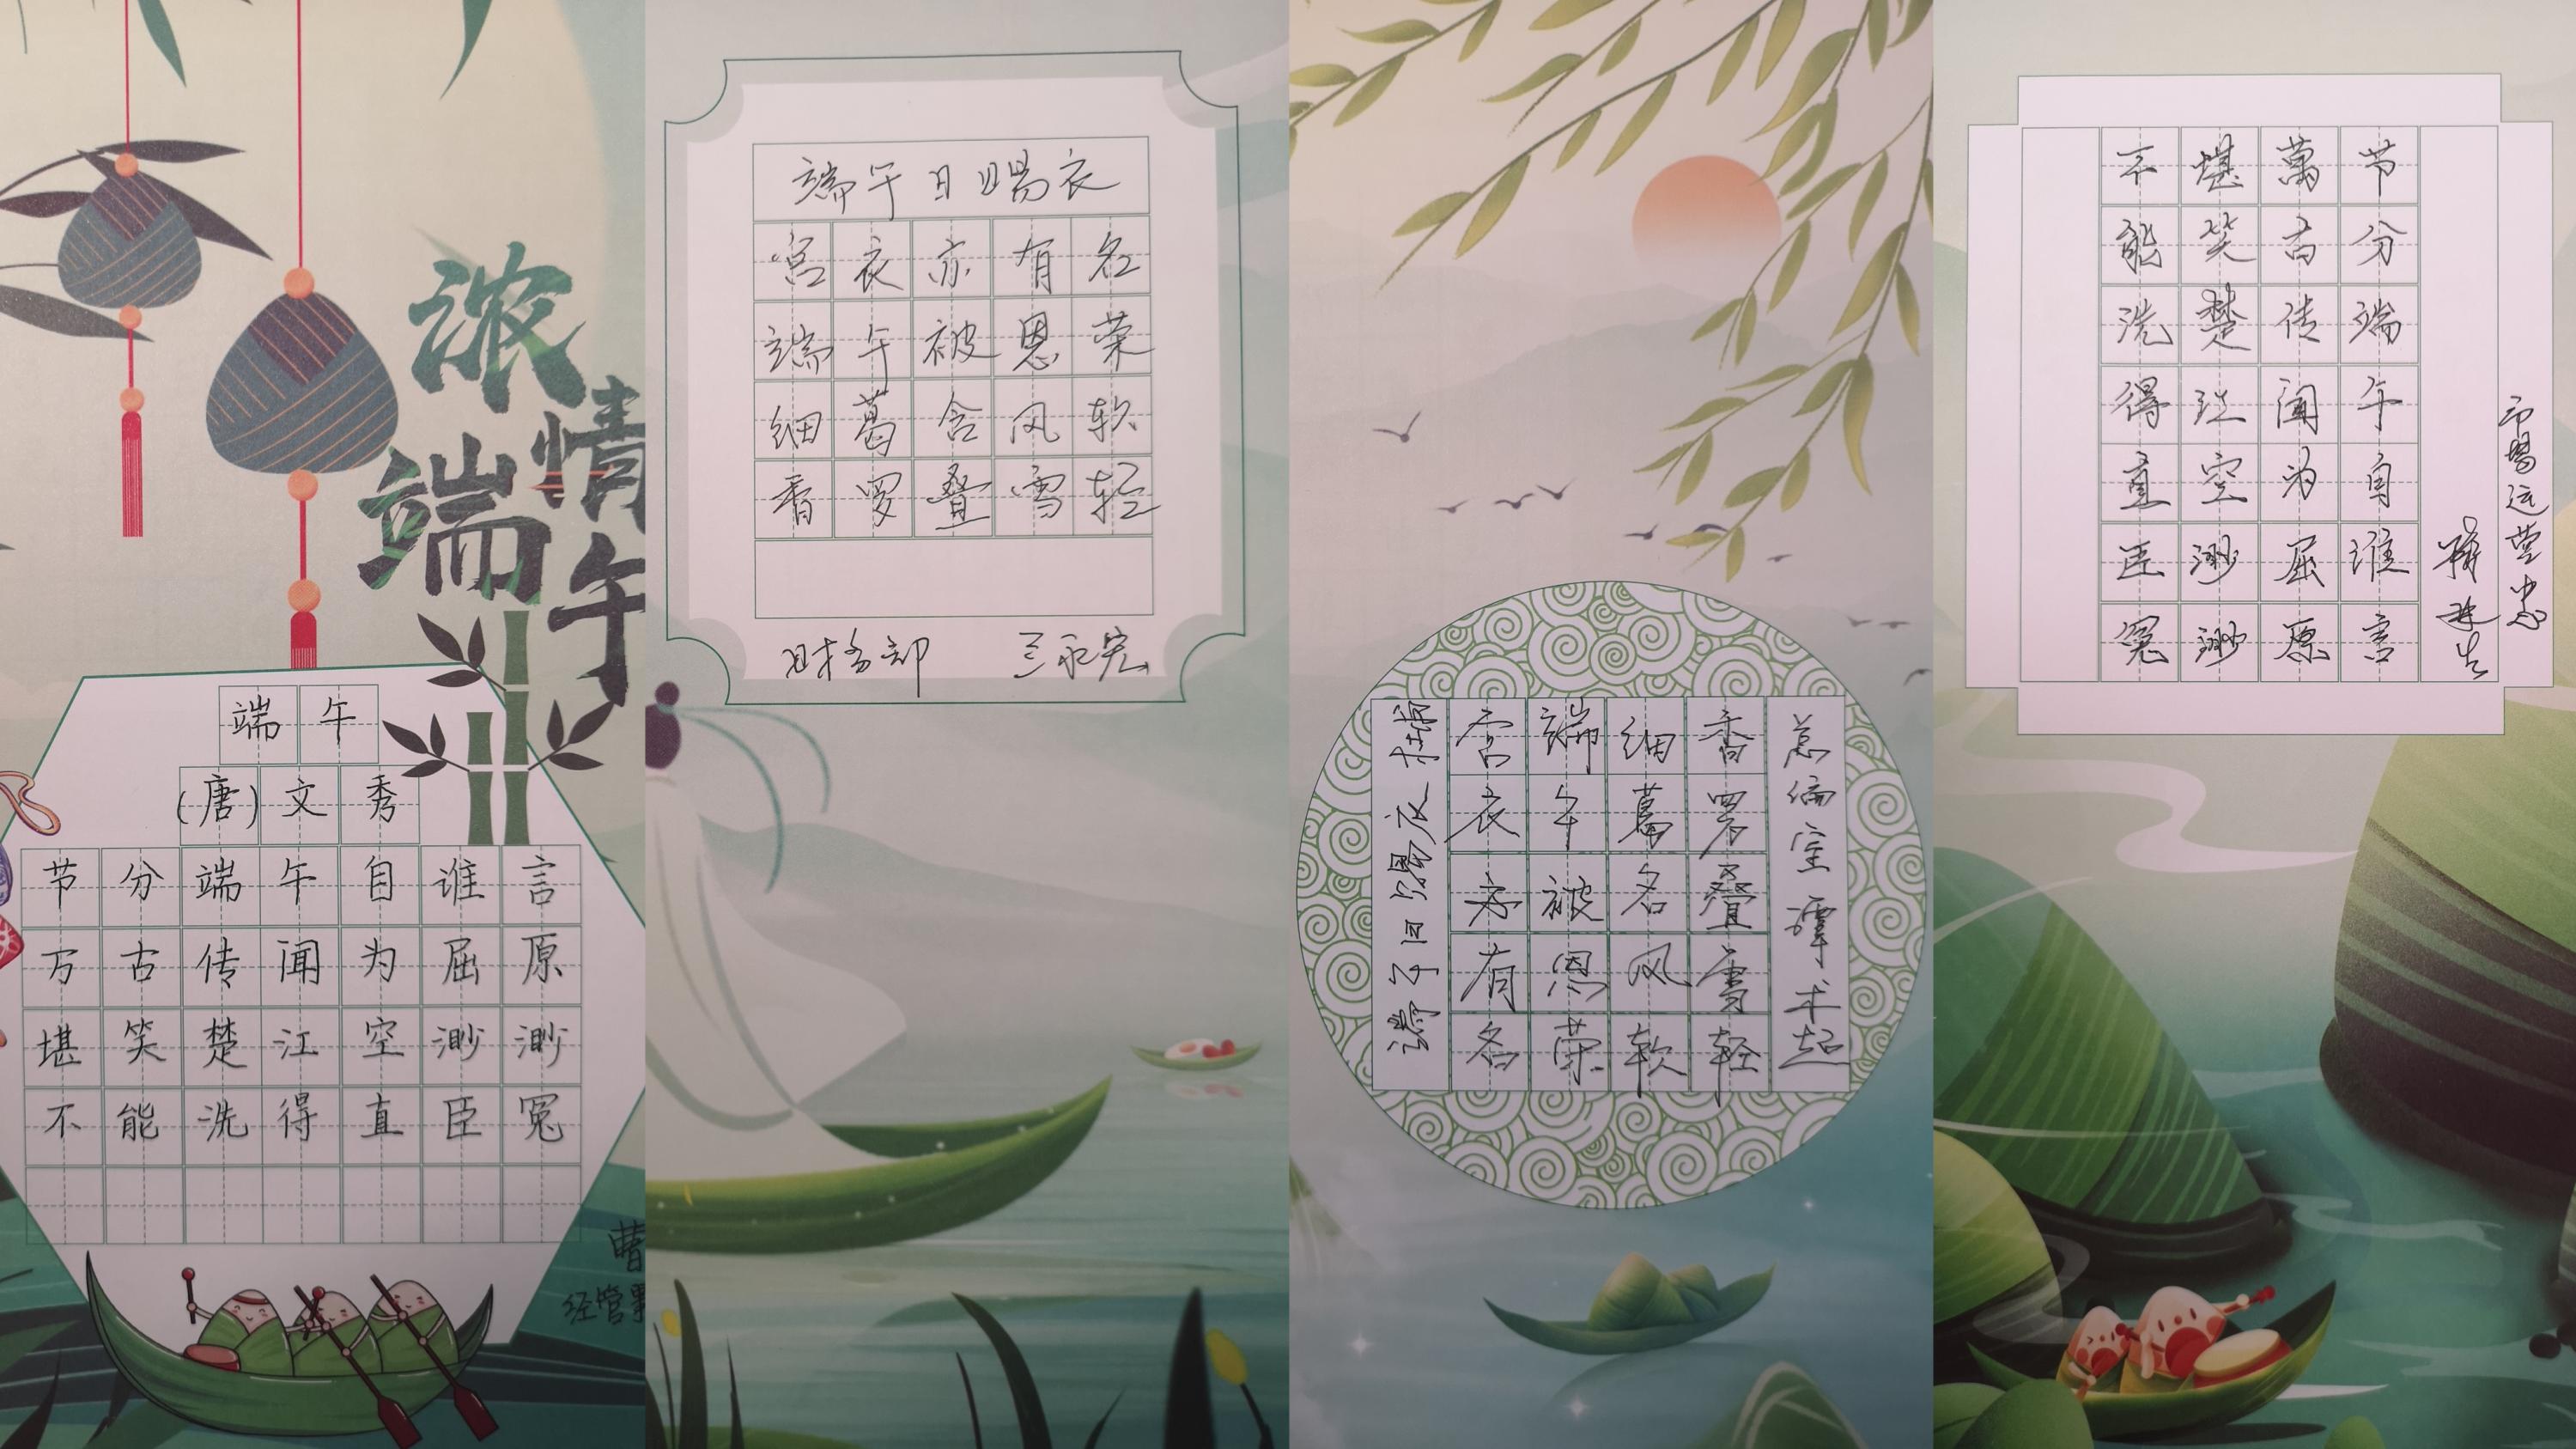 浓情端午
端午
(唐)文秀
节分端午自谁言
万古传闻为屈原
堪笑楚江空渺渺
不能洗得直臣冤
曹
经管
端午日賜衣
宫衣亦有名
端午被恩荣
细葛含风软
香罗叠雪轻
财务部 永宏
端午日賜衣 杜甫
宫衣亦有名
端午被恩荣
细葛名风软
香罗叠雪轻
总编室 谭术起
市場运营中心
节分端午自谁言
萬古传闻为屈原
堪笑楚江空渺渺
不能洗得直臣冤